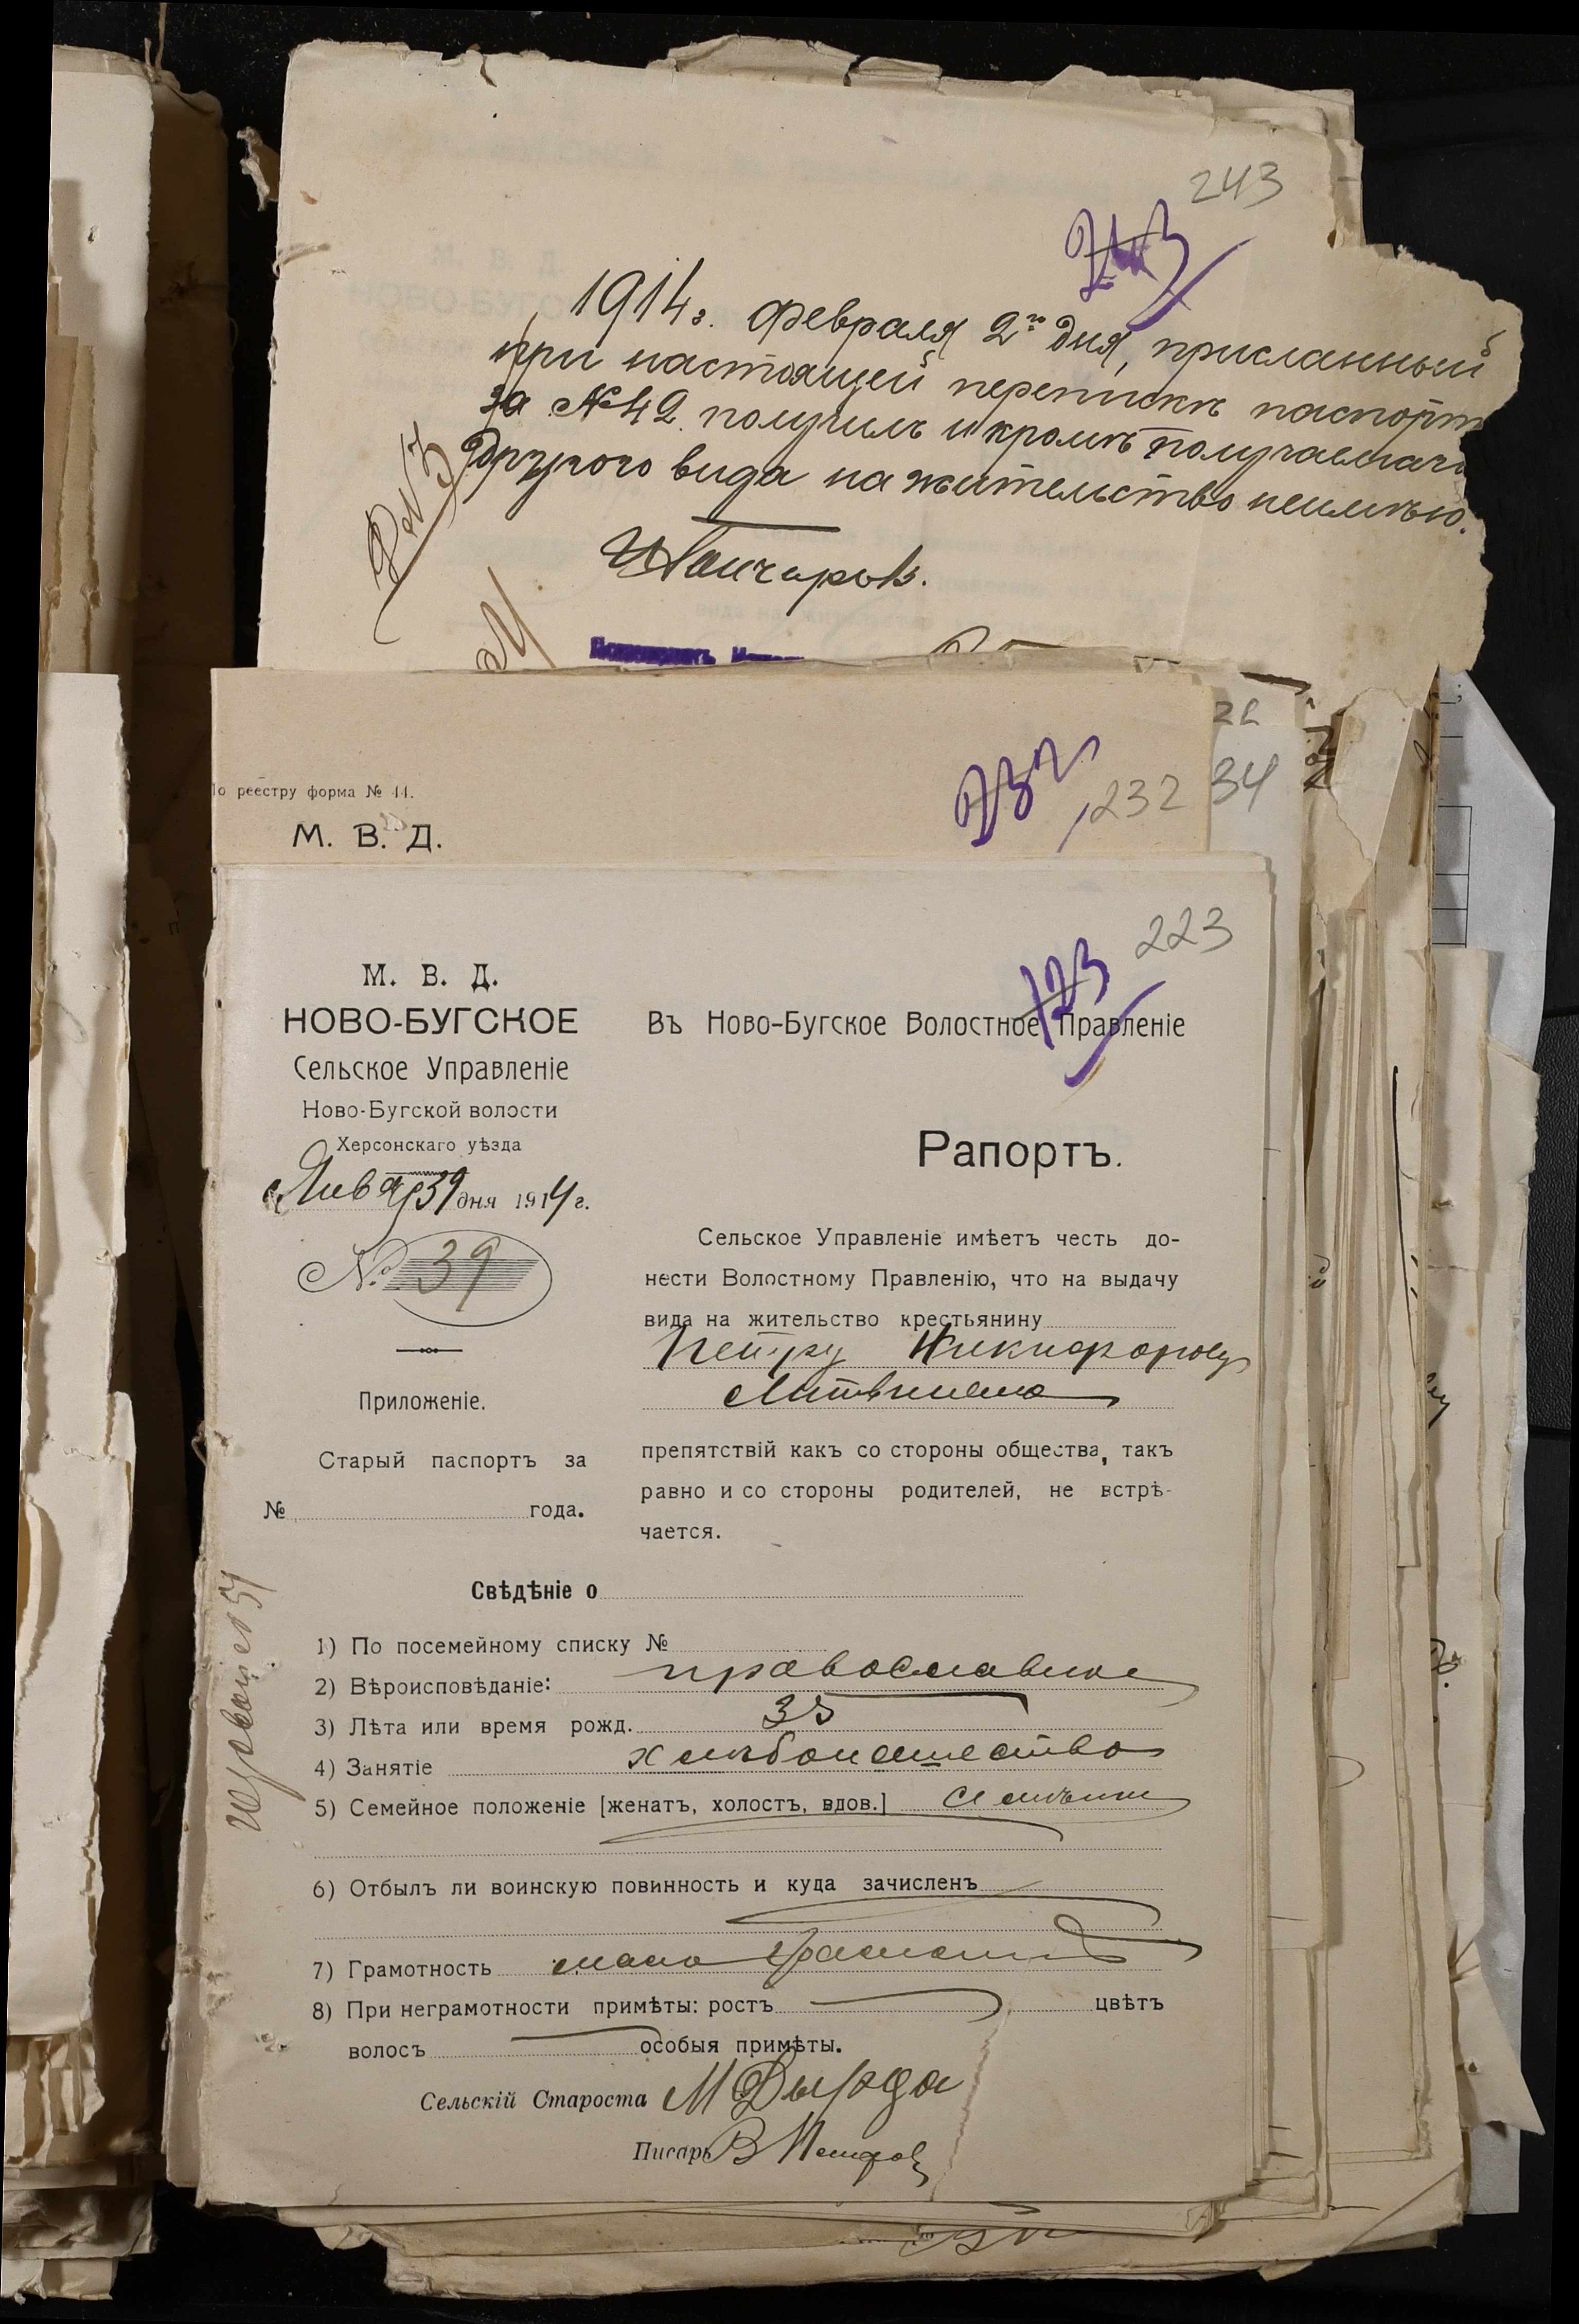 243
243
1914 г. Февраля 2го дня, присланный
при настоящей перепискѣ паспортъ
за № 42 получилъ и кромѣ получаемаго
другого вида на жительство неимѣю.
22
34
232
232
По реестру форма № 44.
М. В. Д.
223
123
М. В. Д.
НОВО-БУГСКОЕ
Сельское Управленіе
Ново-Бугской волости
Херсонскаго уѣзда
Января 31 дня 1914 г.
№ 39
Приложеніе.
Старый паспортъ за
№ года.
Въ Ново-Бугское Волостное Правленіе
Рапортъ.
Сельское Управленіе имѣетъ честь до-
нести Волостному Правленію, что на выдачу
вида на жительство крестьянину
Петру Никифорову
Литвинено
препятствій какъ со стороны общества, такъ
равно и со стороны родителей, не встрѣ-
чается.
Свѣдѣніе о
1) По посемейному списку №
2) Вѣроисповѣданіе: православное
3) Лѣта или время рожд. 35
4) Занятіе хлѣбопашество
5) Семейное положеніе [женатъ, холостъ, вдов.]
6) Отбылъ ли воинскую повинность и куда зачисленъ
7) Грамотность мало грамотный
8) При неграмотности примѣты: ростъ цвѣтъ
волосъ особыя примѣты.
Сельскій Староста М Дырда
Писарь В Петров